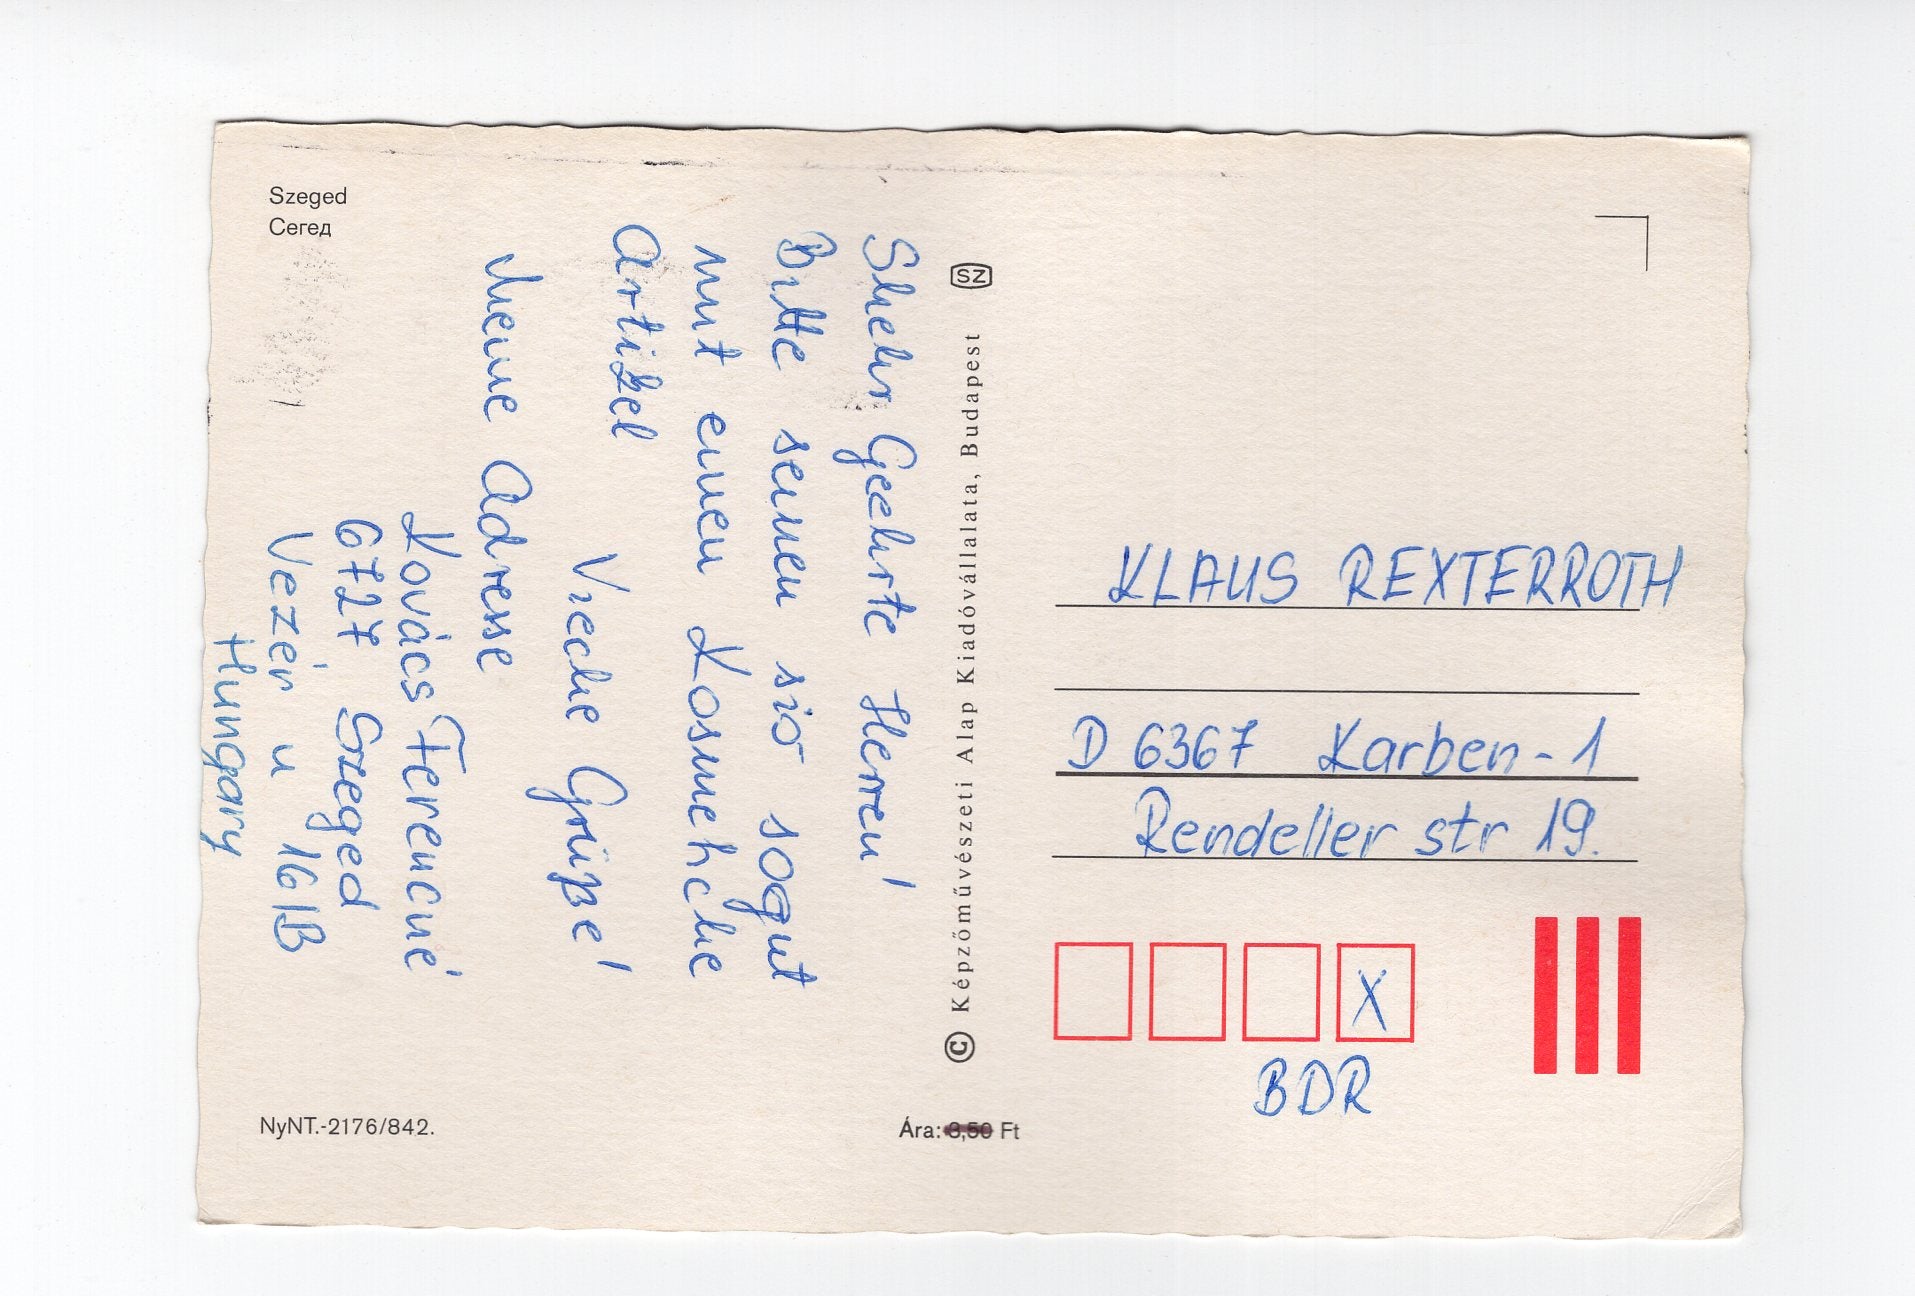 Szeged
Сегед
Shehr Geehrte Herren!
Bitte seinen sió sogut
mit einen Kosmehche
Artikel
Viehe Grüße!
Meine Adresse
Kovács Ferencné
6727 Szeged
Vezér u 16/B
Hungary
NyNT.-2176/842.
SZ
© Képzőművészeti Alap Kiadóvállalata, Budapest
Ára: 3,50 Ft
KLAUS REXTERROTH
D 6367 Karben-1
Rendeller str 19.
X
BDR